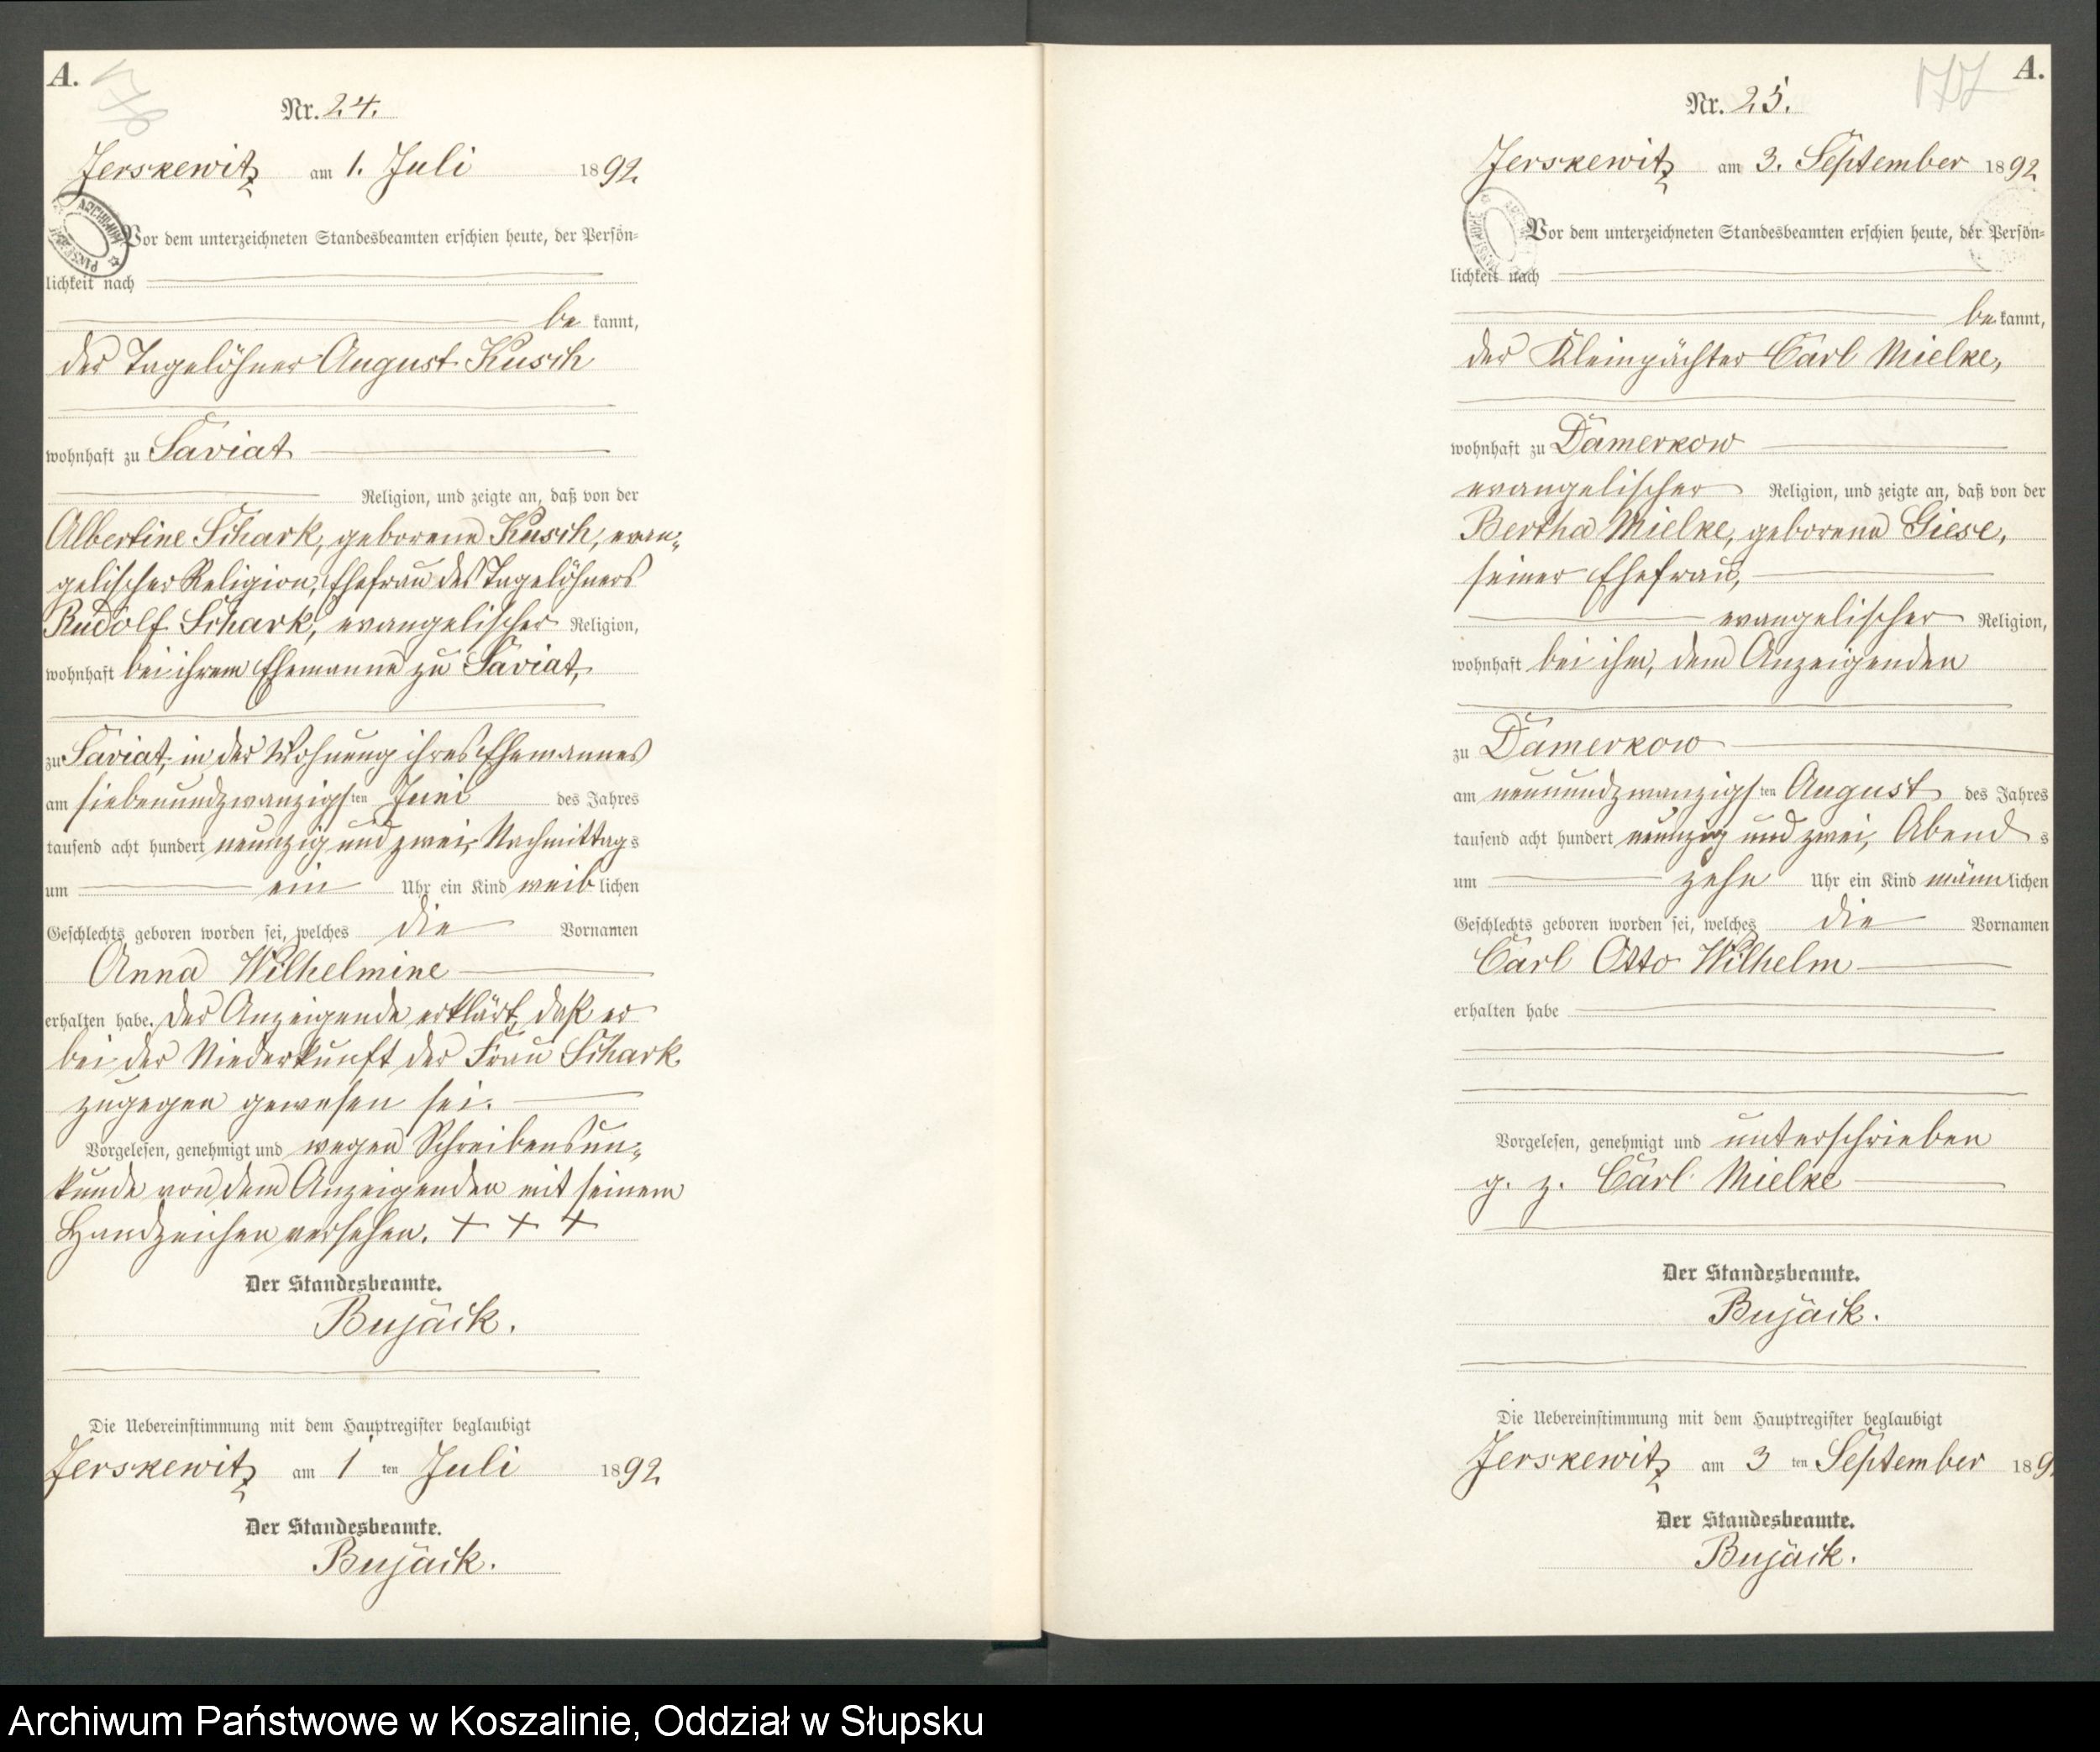 A.
Nr. 24.
Jerskewitz am 1. Juli 1892.
Vor dem unterzeichneten Standesbeamten erschien heute, der Persön=
lichkeit nach
be kannt,
der Tagelöhner August Kusch
wohnhaft zu Saviat
Religion, und zeigte an, daß von der
Albertine Schark, geborene Kusch, evan=
gelischer Religion, Ehefrau des Tagelöhners
Rudolf Schark, evangelischer Religion,
wohnhaft bei ihrem Ehemanne zu Saviat,
zu Saviat, in der Wohnung ihres Ehemannes
am siebenundzwanzigsten Juni des Jahres
tausend acht hundert neunzig und zwei, Nachmittags
um ein Uhr ein Kind weiblichen
Geschlechts geboren worden sei, welches die Vornamen
Anna Wilhelmine
erhalten habe. Der Anzeigende erklärt, daß er
bei der Niederkunft der Frau Schark
zugegen gewesen sei.
Vorgelesen, genehmigt und wegen Schreibensun=
kunde von dem Anzeigenden mit seinem
Handzeichen versehen. + + +
Der Standesbeamte.
Bujack.
Die Uebereinstimmung mit dem Hauptregister beglaubigt
Jerskewitz am 1 ten Juli 1892
Der Standesbeamte.
Bujack.
A.
Nr. 25.
Jerskewitz am 3. September 1892
Vor dem unterzeichneten Standesbeamten erschien heute, der Persön=
lichkeit nach
be kannt,
der Kleinpächter Carl Mielke,
wohnhaft zu Damerkow
evangelischer Religion, und zeigte an, daß von der
Bertha Mielke, geborene Giese,
seiner Ehefrau,
evangelischer Religion,
wohnhaft bei ihm, dem Anzeigenden
zu Damerkow
am neunundzwanzigsten August des Jahres
tausend acht hundert neunzig und zwei, Abends
um zehn Uhr ein Kind männlichen
Geschlechts geboren worden sei, welches die Vornamen
Carl Otto Wilhelm
erhalten habe
Vorgelesen, genehmigt und unterschrieben
g. z. Carl Mielke
Der Standesbeamte.
Bujack.
Die Uebereinstimmung mit dem Hauptregister beglaubigt
Jerskewitz am 3 ten September 189
Der Standesbeamte.
Bujack.
Archiwum Państwowe w Koszalinie, Oddział w Słupsku